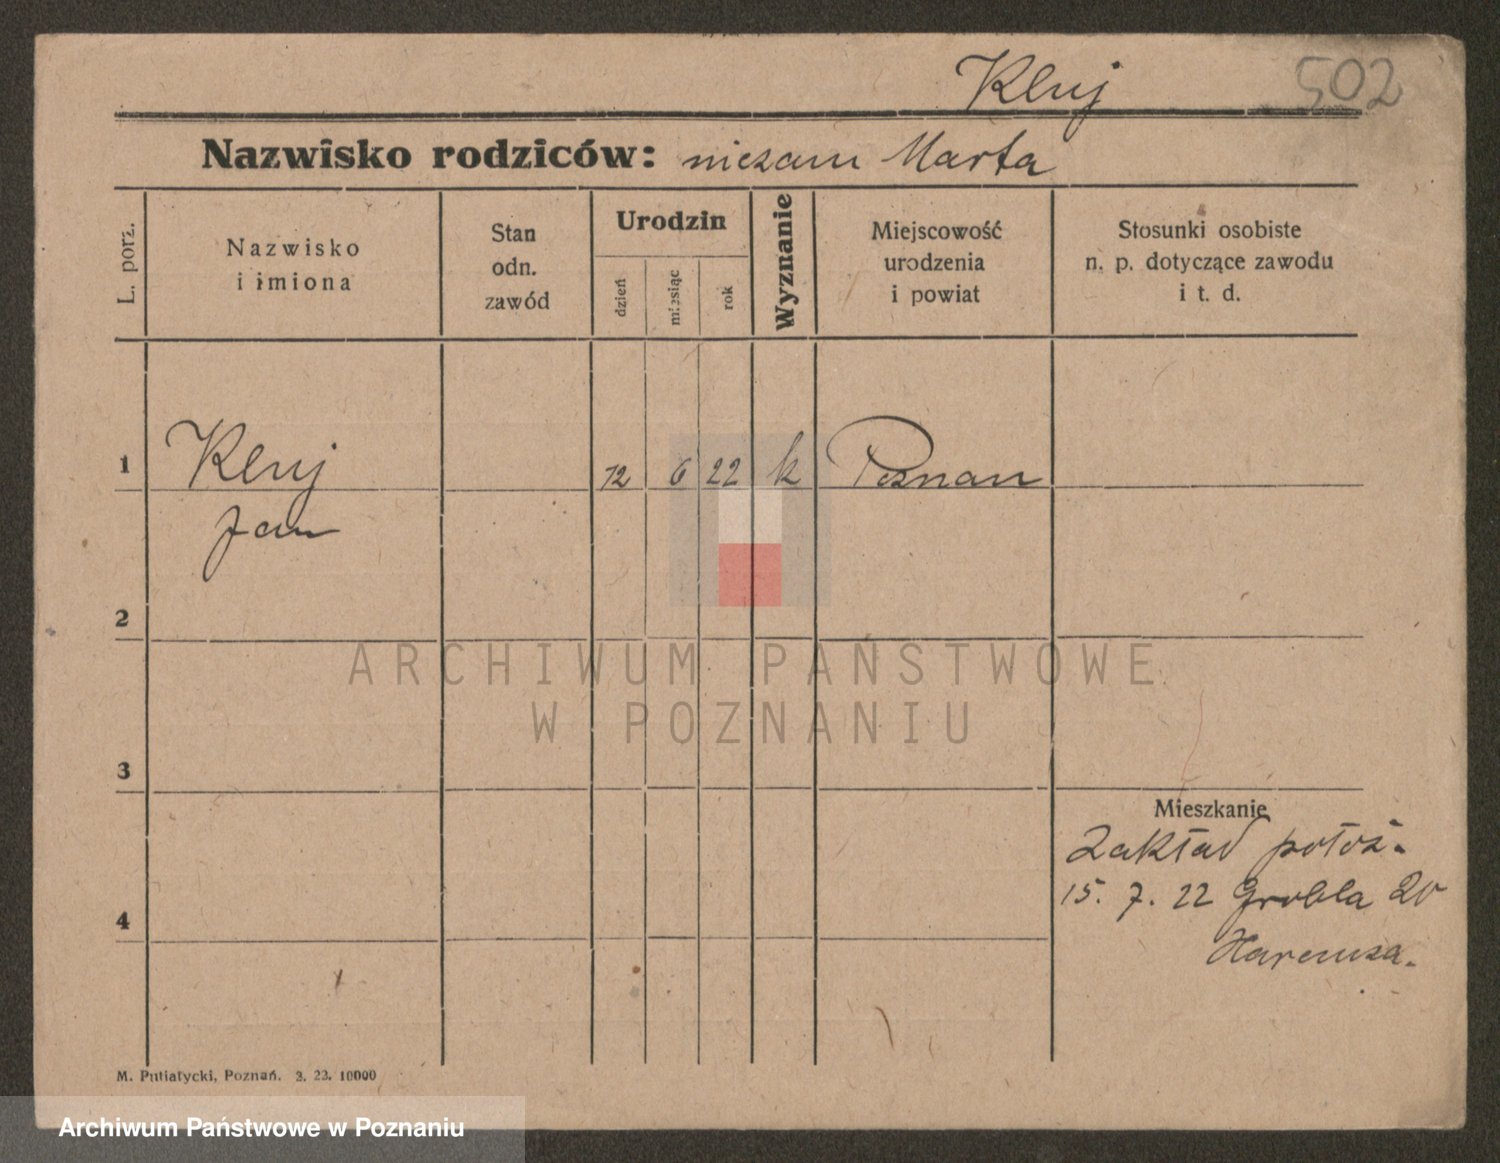 Kluj 502
Nazwisko rodziców: niezam Marta
L. porz.
Nazwisko
i imiona
Stan
odn.
zawód
Urodzin
dzień
miesiąc
rok
Wyznanie
Miejscowość
urodzenia
i powiat
Stosunki osobiste
n. p. dotyczące zawodu
i t. d.
1 Kluj 12 6 22 k Poznan
Jan
2
ARCHIWUM PAŃSTWOWE
W POZNANIU
3
Mieszkanie
Zakład położ.
15. 7. 22 Grobla 20
4
M. Putiatycki, Poznań. 3. 23. 10000
Archiwum Państwowe w Poznaniu